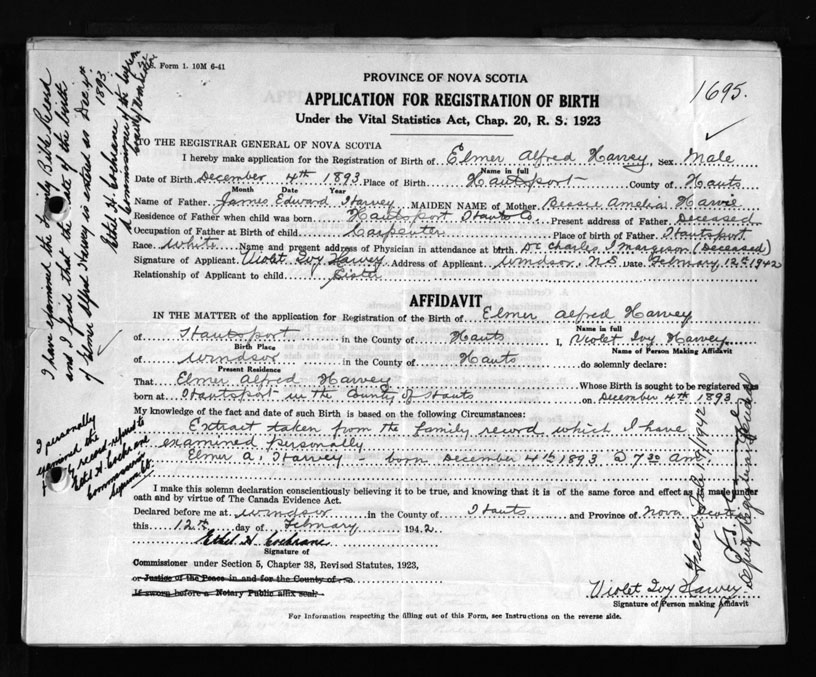 S. Form 1. 10M 6-41
PROVINCE OF NOVA SCOTIA
1695.
APPLICATION FOR REGISTRATION OF BIRTH
Under the Vital Statistics Act, Chap. 20, R. S. 1923
TO THE REGISTRAR GENERAL OF NOVA SCOTIA
I hereby make application for the Registration of Birth of Elmer Alfred Harvey, Sex Male
Name in full
Date of Birth December 4th 1893 Place of Birth Hantsport County of Hants
Month Date Year
Name of Father James Edward Harvey MAIDEN NAME of Mother Bessie Amelia Harvie
Residence of Father when child was born Hantsport Hants Co. Present address of Father Deceased
Occupation of Father at Birth of child Carpenter Place of birth of Father Hantsport
Race White Name and present address of Physician in attendance at birth Dr. Charles I Margeson (Deceased)
Signature of Applicant Violet Ivy Harvey Address of Applicant Windsor, N.S. Date February 12th 1942
Relationship of Applicant to child Sister
AFFIDAVIT
IN THE MATTER of the application for Registration of the Birth of Elmer Alfred Harvey
Name in full
of Hantsport in the County of Hants I, Violet Ivy Harvey
Birth Place Name of Person Making Affidavit
of Windsor in the County of Hants do solemnly declare:
Present Residence
That Elmer Alfred Harvey Whose Birth is sought to be registered was
born at Hantsport in the County of Hants on December 4th 1893
My knowledge of the fact and date of such Birth is based on the following Circumstances:
Extract taken from the family record which I have
examined personally
Elmer A. Harvey - born December 4th 1893 @ 7 30 am
I make this solemn declaration conscientiously believing it to be true, and knowing that it is of the same force and effect as if made under
oath and by virtue of The Canada Evidence Act.
Declared before me at Windsor in the County of Hants and Province of Nova Scotia
this 12th day of February 1942
Ethel H Cochrane
Signature of
Commissioner under Section 5, Chapter 38, Revised Statutes, 1923,
or Justice of the Peace in and for the County of
If sworn before a Notary Public affix seal.
Violet Ivy Harvey
Signature of Person making Affidavit
For Information respecting the filling out of this Form, see Instructions on the reverse side.
I have examined the Family Bible Record
and I find that the date of the birth
of Elmer Alfred Harvey is entered as Dec. 4th
1893
Ethel H. Cochrane
A Commissioner of the Supreme
I personally
examined the
record referred to
Ethel H. Cochrane
Commissioner
Supreme Ct.
1942
Deputy Registrar General